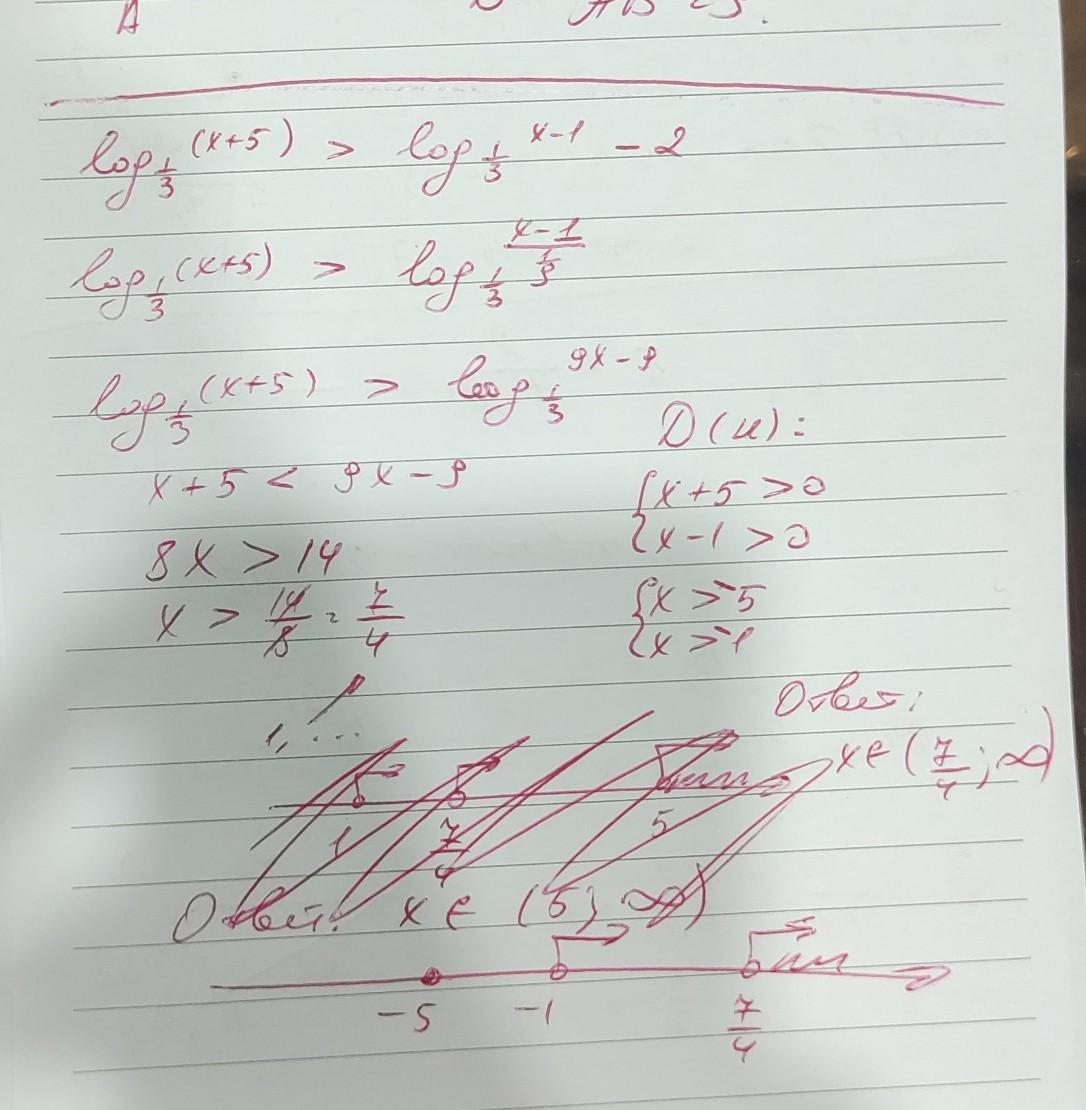 A
log_{1/3} (x+5) > log_{1/3} x-1 - 2
log_{1/3} (x+5) > log_{1/3} \frac{x-1}{\frac{1}{9}}
log_{1/3} (x+5) > log_{1/3} 9x-9
D(u):
x+5 < 9x-9
{x+5 > 0
{x-1 > 0
8x > 14
x > 14/8 = 7/4
{x > -5
{x > -1
1, ...
Ответ:
x ∈ (7/4; ∞)
1 7/4 5
Ответ: x ∈ (5; ∞)
-5 -1 7/4